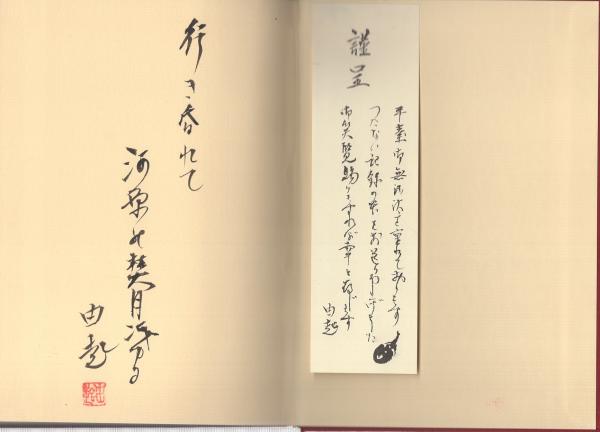 謹呈
平素御無沙汰を重ねております
つたない記録の本をお送り申し上げました
御笑覧賜りますれば幸と存じます
由起
行き昏れて
河原
由起